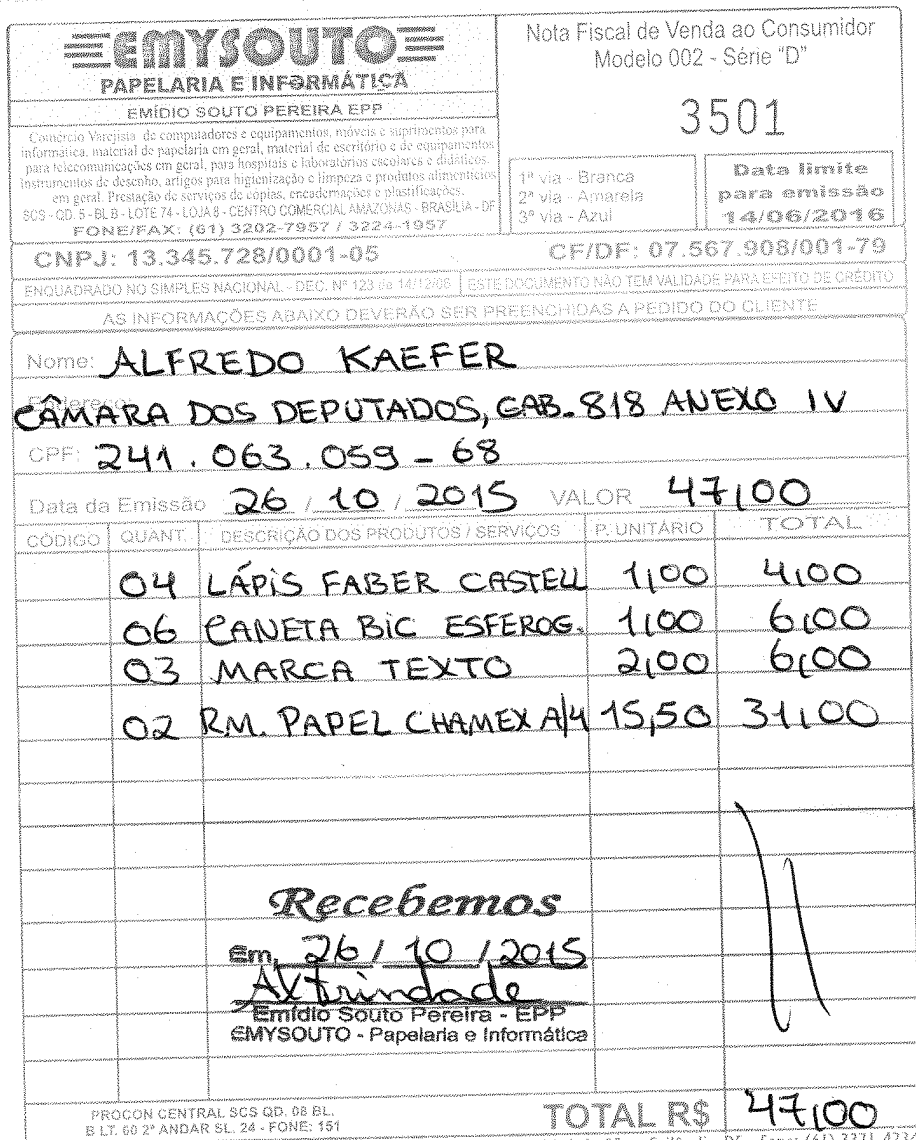 EMYSOUTO
PAPELARIA E INFORMÁTICA
EMÍDIO SOUTO PEREIRA EPP
Comércio Varejista de computadores e equipamentos, móveis e suprimentos para
informática, material de papelaria em geral, material de escritório e de equipamentos
para telecomunicações em geral, para hospitais e laboratórios escolares e didáticos,
instrumentos de desenho, artigos para higienização e limpeza e produtos alimentícios
em geral. Prestação de serviços de cópias, encadernações e plastificações.
SCS - QD. 5 - BL B - LOTE 74 - LOJA 8 - CENTRO COMERCIAL AMAZONAS - BRASÍLIA - DF
FONE/FAX: (61) 3202-7957 / 3224-1957
Nota Fiscal de Venda ao Consumidor
Modelo 002 - Série "D"
3501
1ª via - Branca
2ª via - Amarela
3ª via - Azul
Data limite
para emissão
14/06/2016
CNPJ: 13.345.728/0001-05 CF/DF: 07.567.908/001-79
ENQUADRADO NO SIMPLES NACIONAL - DEC. Nº 123 de 14/12/06 ESTE DOCUMENTO NÃO TEM VALIDADE PARA EFEITO DE CRÉDITO
AS INFORMAÇÕES ABAIXO DEVERÃO SER PREENCHIDAS A PEDIDO DO CLIENTE
Nome: ALFREDO KAEFER
Endereço: CÂMARA DOS DEPUTADOS, GAB. 818 ANEXO IV
CPF: 241.063.059-68
Data da Emissão 26 / 10 / 2015 VALOR 47,00
CÓDIGO QUANT. DESCRIÇÃO DOS PRODUTOS / SERVIÇOS P. UNITÁRIO TOTAL
04 LÁPIS FABER CASTELL 1,00 4,00
06 CANETA BIC ESFEROG. 1,00 6,00
03 MARCA TEXTO 2,00 6,00
02 RM. PAPEL CHAMEX A/4 15,50 31,00
Recebemos
Em, 26 / 10 / 2015
Axtrindade
Emídio Souto Pereira - EPP
EMYSOUTO - Papelaria e Informática
PROCON CENTRAL SCS QD. 08 BL.
B LT. 60 2º ANDAR SL. 24 - FONE: 151
TOTAL R$ 47,00